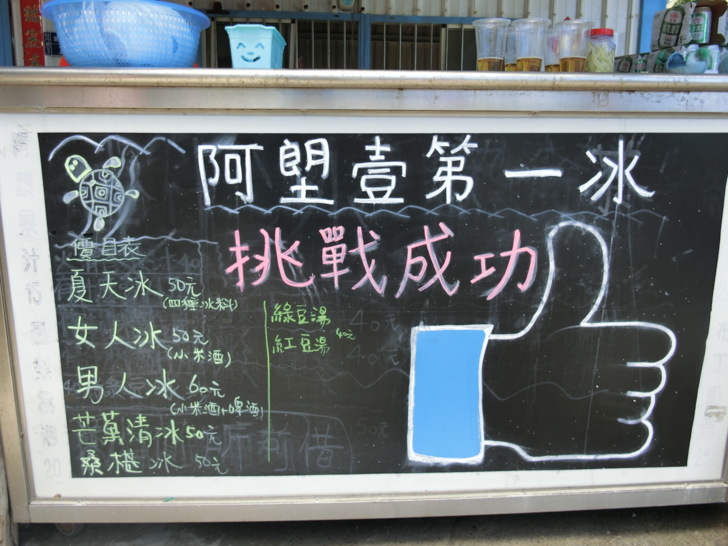 阿塱壹第一冰
挑戰成功
價目表
夏天冰 50元
(四種冰料)
女人冰 50元
(小米酒)
男人冰 60元
(小米酒+啤酒)
芒菓清冰 50元
桑椹冰 50元
綠豆湯
紅豆湯 40元